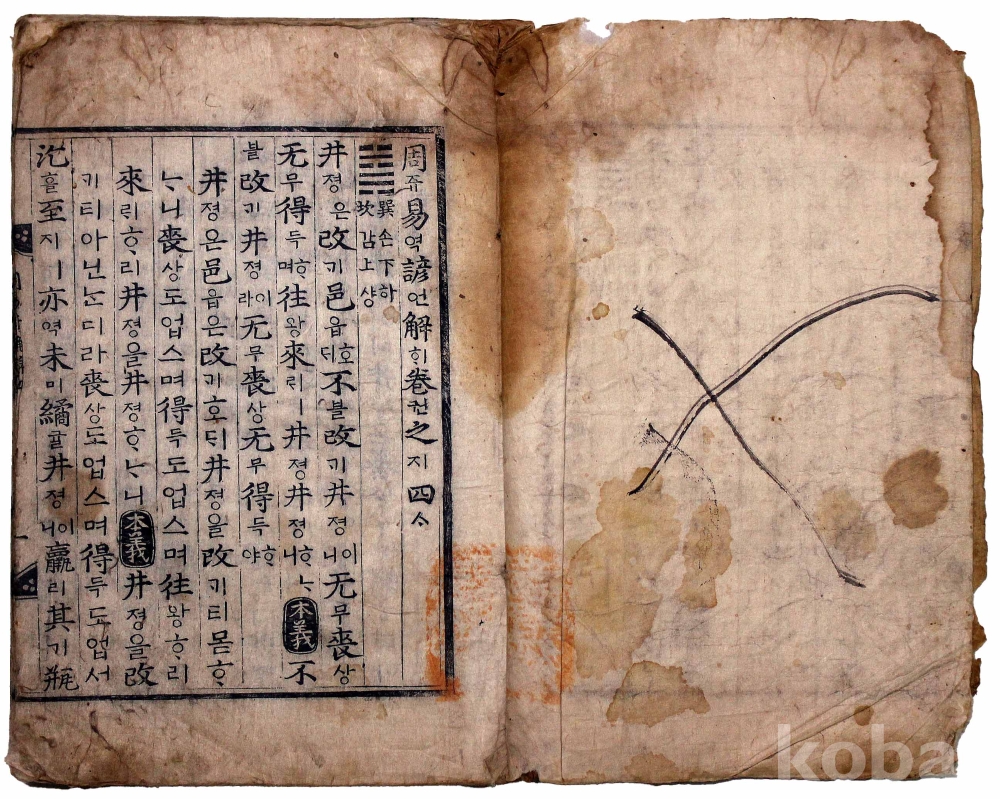 周쥬易역諺언解ᄒᆡ卷권之지四ᄉᆞ
巽손下하
坎감上샹
井졍은改기邑읍호ᄃᆡ不블改기井졍이니无무喪상
无무得득ᄒᆞ며往왕來ᄅᆡㅣ井졍井졍ᄒᆞᄂᆞ니本義不
블改기井졍이라无무喪상无무得득ᄒᆞ야
井졍은邑읍은改기호ᄃᆡ井졍을改기티몯ᄒᆞ
ᄂᆞ니喪상도업스며得득도업스며往왕ᄒᆞ리
來ᄅᆡᄒᆞ리井졍을井졍ᄒᆞᄂᆞ니本義井졍을改
기티아닌ᄂᆞᆫ디라喪상도업스며得득도업서
汔흘至지ㅣ亦역未미繘귤井졍이니羸리其기甁
koba